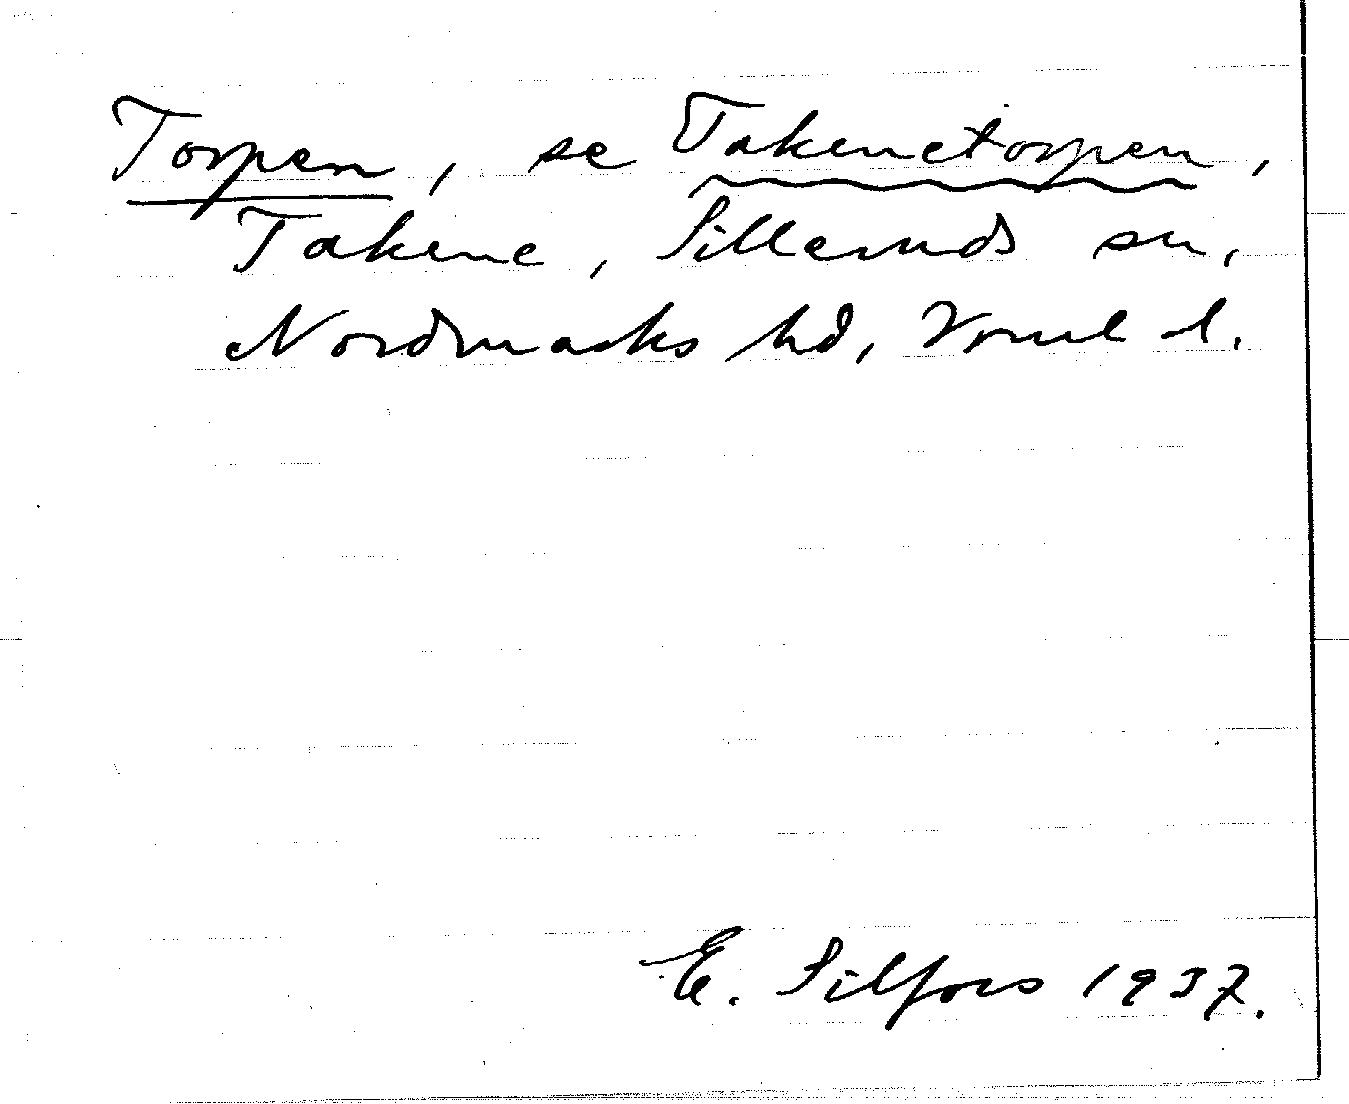 Torpen, se Takenetorpen,
Takene, Silleruds sn,
Nordmarks hd, Vrml l.
E. Silfors 1937.